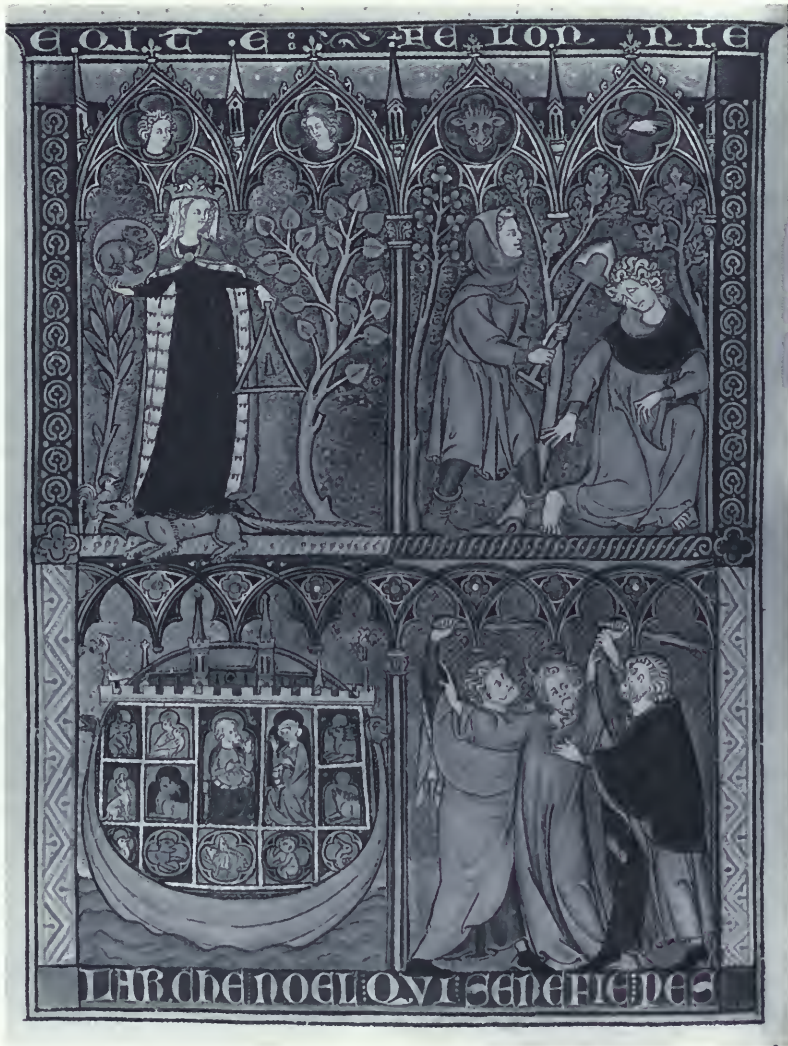 EQITE : FELONNIE
LARCHE NOEL QVI SENEFIE PES